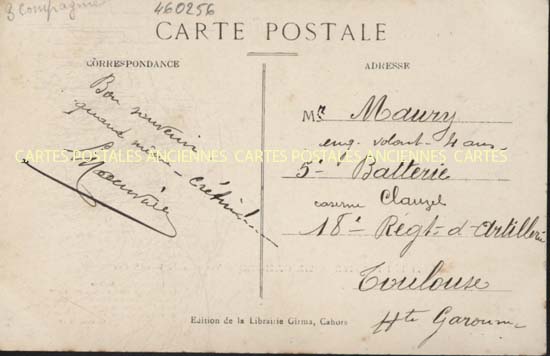 3 Compagnie
460256
CARTE POSTALE
CORRESPONDANCE
ADRESSE
Bon souvenir
quand même — crétin!....
Mr Maury
eng. volont. 4 ans
5e Batterie
caserne Clauzel
18e Régt d'Artillerie
Toulouse
Hte Garonne
CARTES POSTALES ANCIENNES CARTES POSTALES ANCIENNES CARTES POSTALES
Edition de la Librairie Girma, Cahors